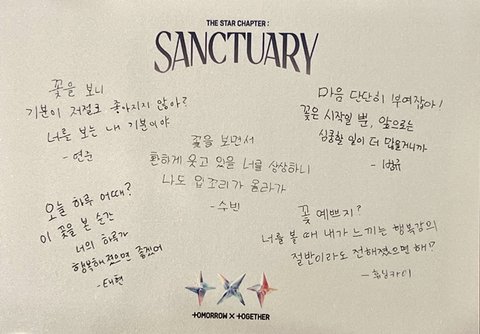 THE STAR CHAPTER :
SANCTUARY
꽃을 보니
기분이 저절로 좋아지지 않아?
너를 보는 내 기분이야
- 연준
꽃을 보면서
환하게 웃고 있을 너를 상상하니
나도 입꼬리가 올라가
- 수빈
마음 단단히 부여잡아!
꽃은 시작일 뿐, 앞으로는
심쿵할 일이 더 많을거니까
- 범규
오늘 하루 어때?
이 꽃을 본 순간
너의 하루가
행복해졌으면 좋겠어
- 태현
꽃 예쁘지?
너를 볼 때 내가 느끼는 행복감의
절반이라도 전해졌으면 해!
- 휴닝카이
TOMORROW X TOGETHER